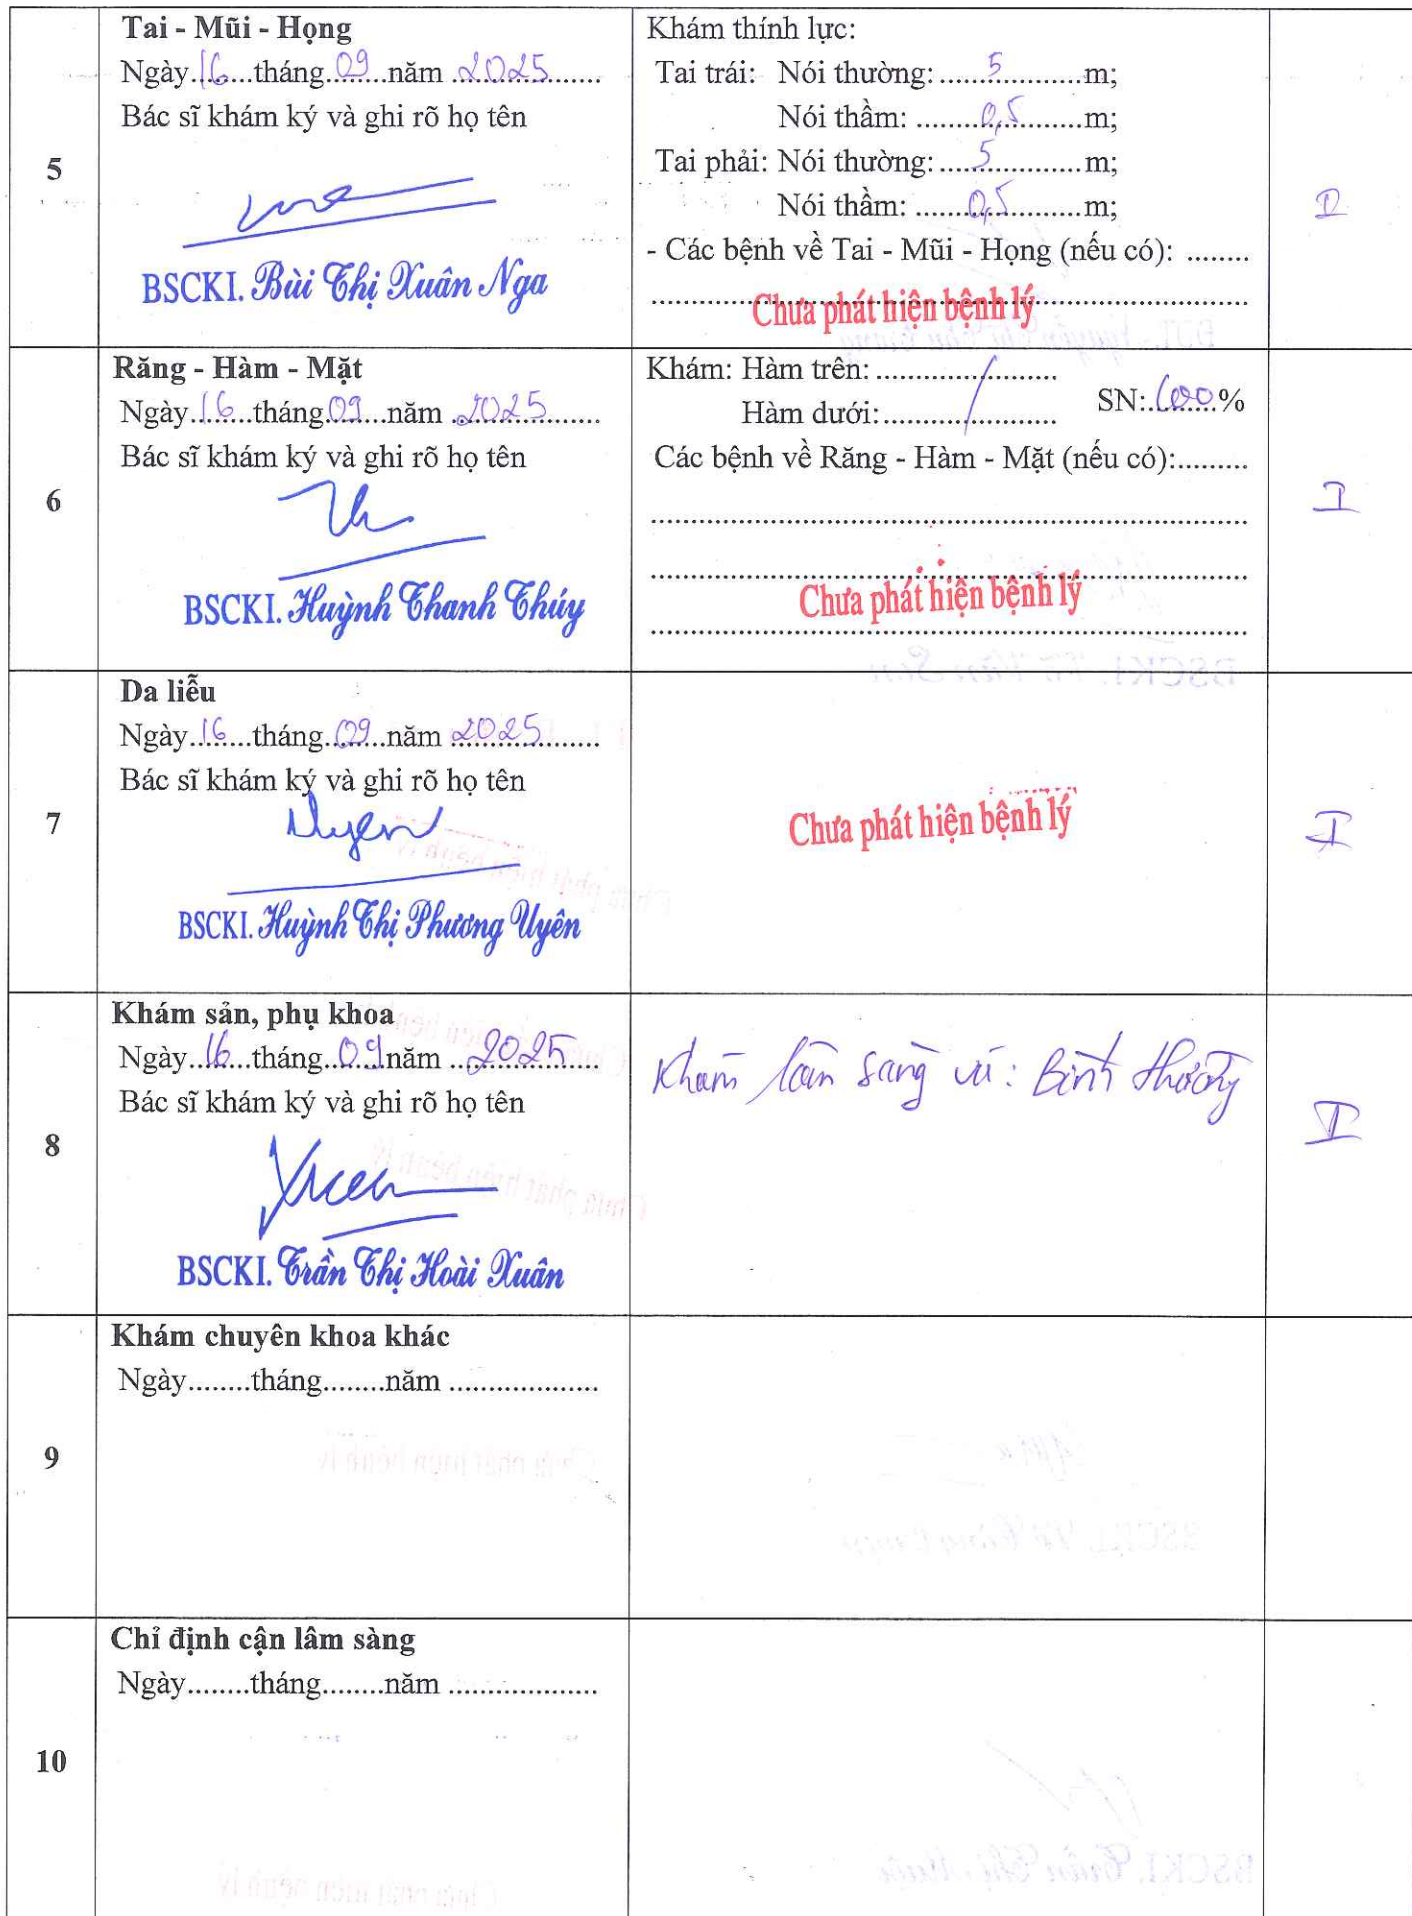 Tai - Mũi - Họng
Ngày..16...tháng..09...năm ..2025......
Bác sĩ khám ký và ghi rõ họ tên
5
BSCKI. Bùi Thị Xuân Nga
Khám thính lực:
Tai trái: Nói thường: ......5..........m;
Nói thầm: ........0,5........m;
Tai phải: Nói thường: .....5...........m;
Nói thầm: .......0,5.........m;
- Các bệnh về Tai - Mũi - Họng (nếu có): ........
Chưa phát hiện bệnh lý
I
Răng - Hàm - Mặt
Ngày..16...tháng..09...năm ..2025......
Bác sĩ khám ký và ghi rõ họ tên
6
BSCKI. Huỳnh Thanh Thúy
Khám: Hàm trên: ......../.........
Hàm dưới: ......../.........
SN:..100..%
Các bệnh về Răng - Hàm - Mặt (nếu có):.........
Chưa phát hiện bệnh lý
I
Da liễu
Ngày..16...tháng..09...năm ..2025......
Bác sĩ khám ký và ghi rõ họ tên
7
Uyên
BSCKI. Huỳnh Thị Phương Uyên
Chưa phát hiện bệnh lý
I
Khám sản, phụ khoa
Ngày..16...tháng..09..năm ..2025......
Bác sĩ khám ký và ghi rõ họ tên
8
BSCKI. Trần Thị Hoài Xuân
Khám lâm sàng vú: Bình thường
I
Khám chuyên khoa khác
Ngày........tháng........năm ...................
9
Chỉ định cận lâm sàng
Ngày........tháng........năm ...................
10